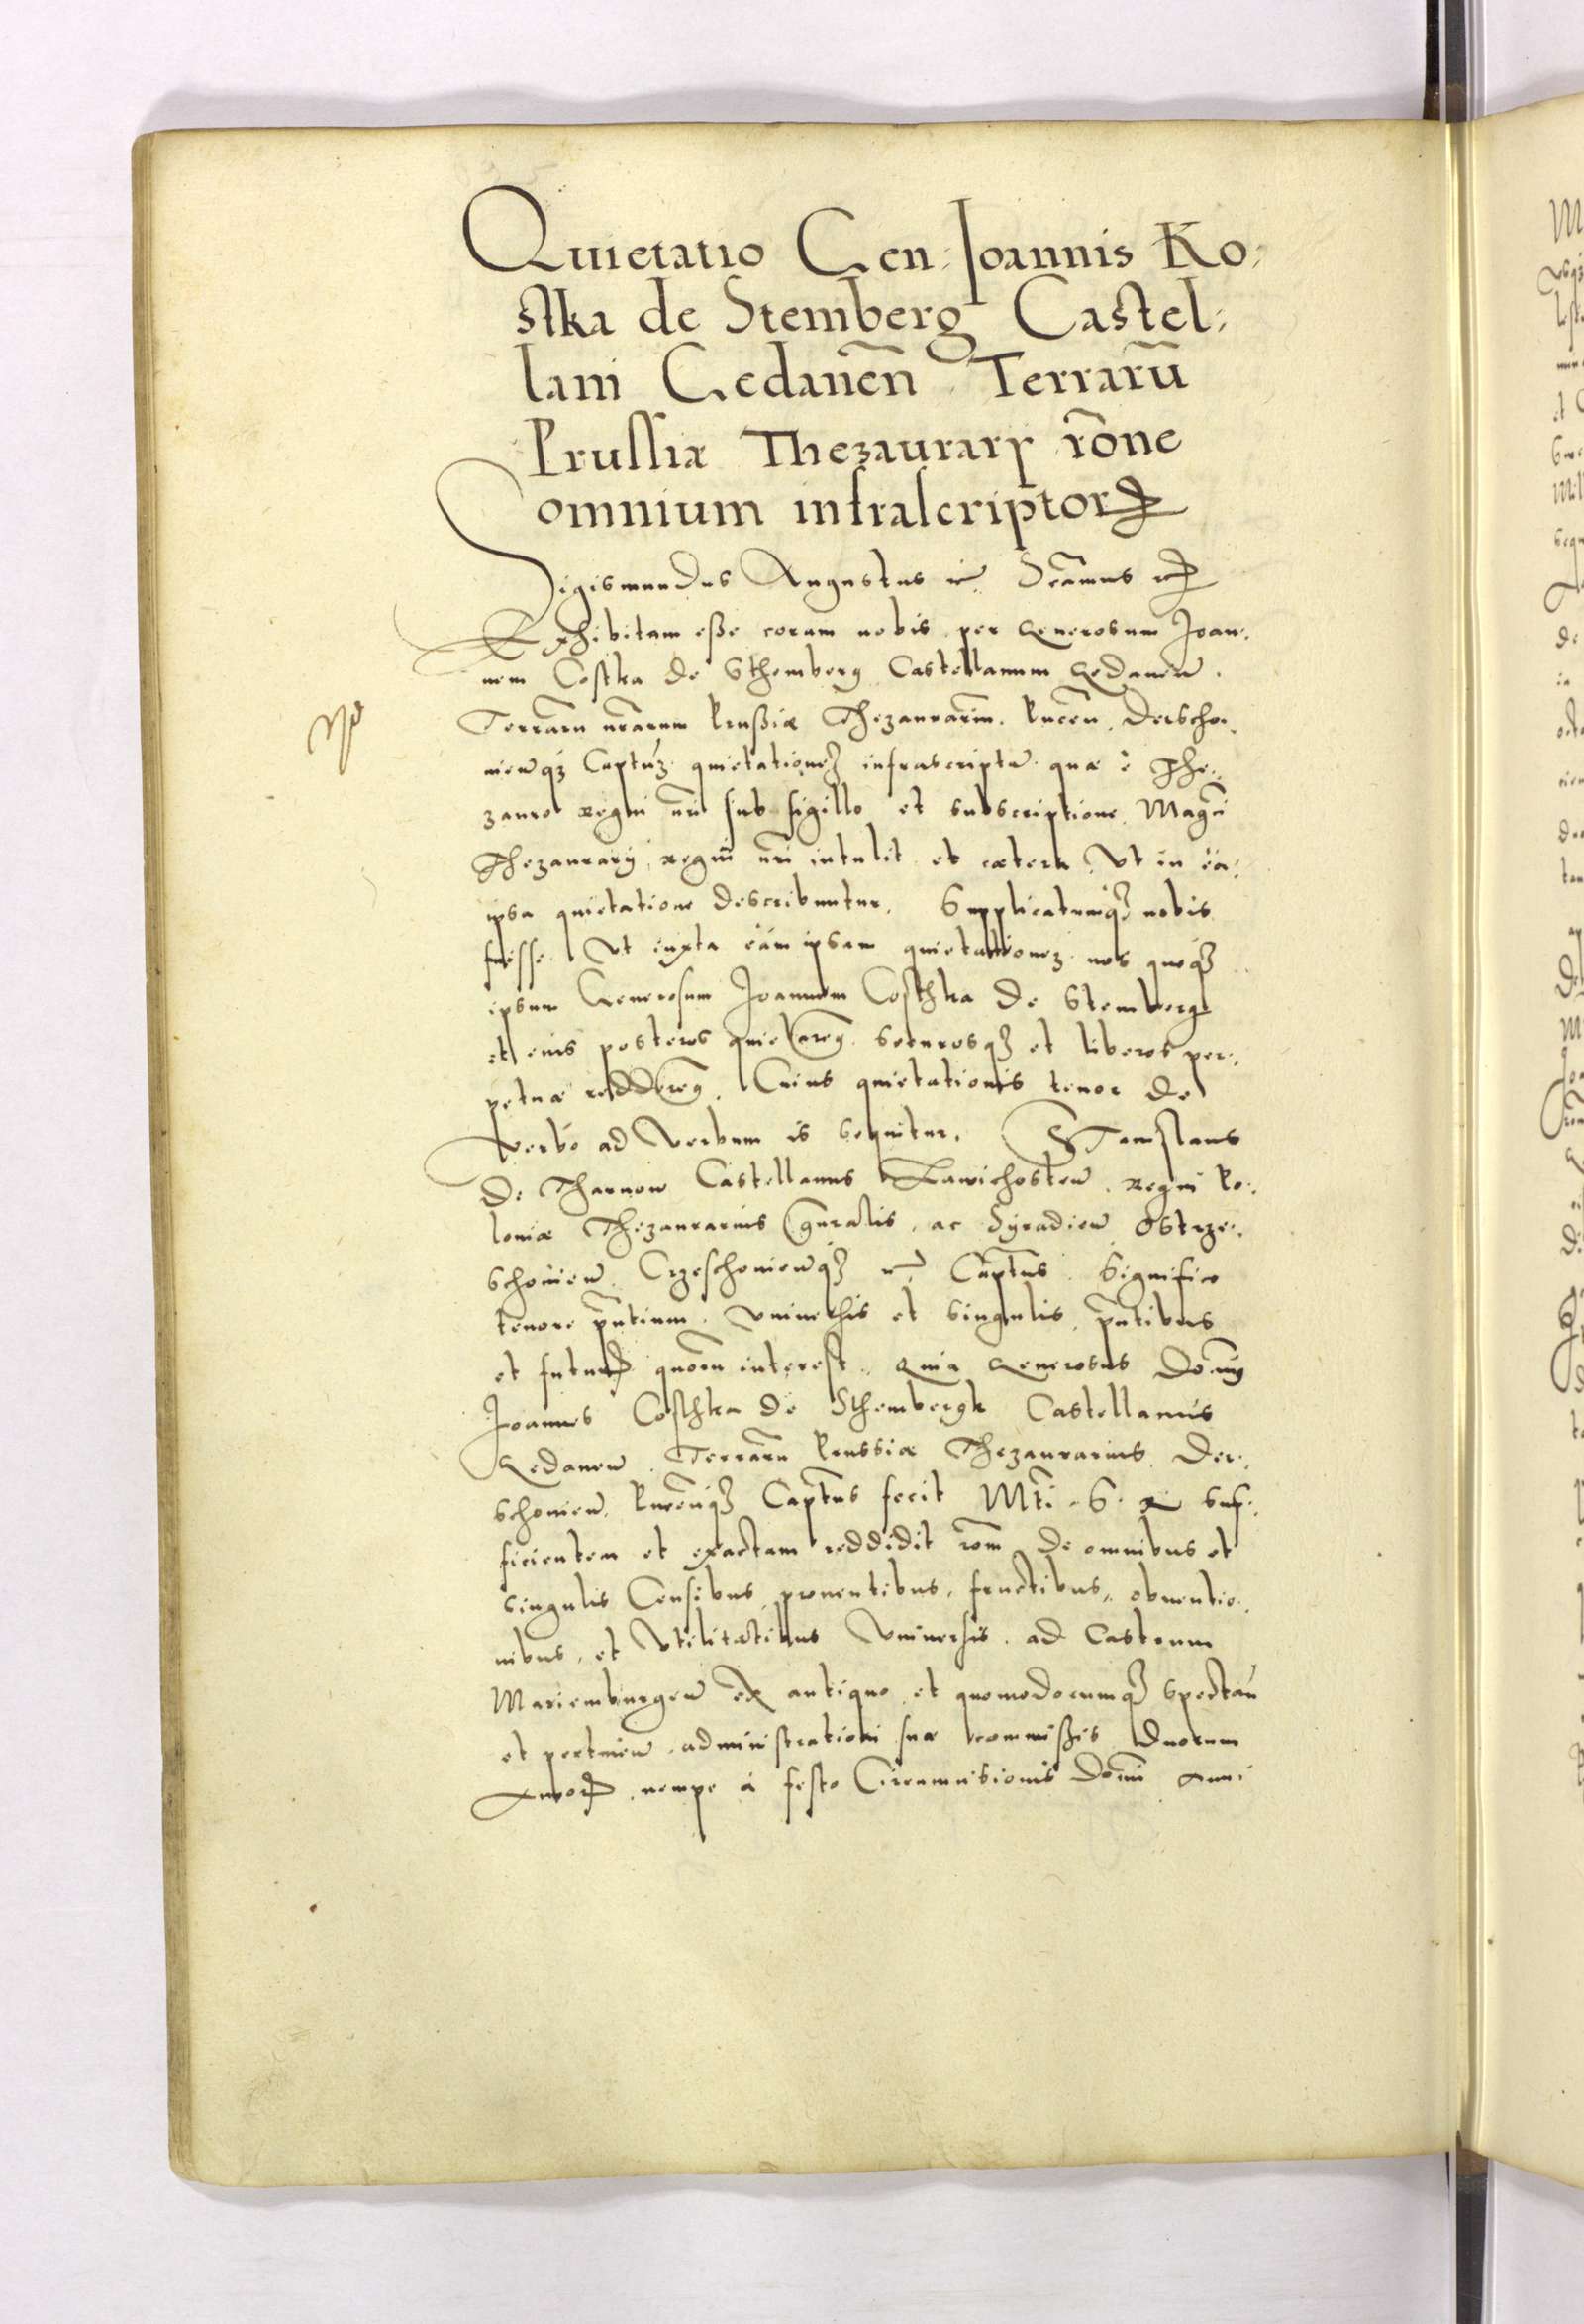 Quietatio Gen: Joannis Ko:
stka de Stemberg Castel:
lani Gedaneñ Terrarũ
Prussiæ Thezaurarij rõne
omnium infrascriptor
Sigismundus Augustus Recognoscimus
Exhibitam esse coram nobis per Generosum Joan:
nem Costka de Sthemberg Castellanum Gedaneñ.
Terrarũ nrarum Prussiæ Thezaurariũ. Puceñ. Derscho:
nieñqz Captuz quietationez infrascriptã quæ è The:
zauro regni nri sub sigillo et subscriptione Magci
Thezaurarij regni nri intulit et cætera Vt in ea:
ipsa quietatione describuntur. Supplicatumqz nobis
fuisse Vt iuxta eam ipsam quietationez nos quoqz
ipsum Generosum Joannem Costhka de Stemberg
et eius posteros quietarem9 securosqz et liberos per:
petuæ redderem9. Cuius quietationis tenor de
verbo ad Verbum is sequitur. Stanislaus
de Tharnow Castellanus Zawichosteñ. regni Po:
loniæ Thezaurarius gnralis, ac Syradieñ Ostrze:
schonieñ. Crzeschonieñqz Captus. Significo
tenore pñtium. vniuersis et singulis, pñtibus
et futur quorũ interest. Quia Generosus Dom9
Joannes Costhka de Sthembergk Castellanus
Gedaneñ. Terrarũ Prussiæ Thezaurarius. Der:
schonieñ. Puceñqz Captus fecit Mti. S. R suf:
ficientem et exactam reddidit rõm de omnibus et
singulis Censibus, prouentibus, fructibus, obuentio:
nibus, et Vtilitatibus Vniuersis. ad Castrum
Mariemburgeñ ex antiquo et quomodocumqz spectañ
et pertineñ. administrationi suæ commissis Duorum
Annor. nempe à festo Circumcisionis Domi Anni